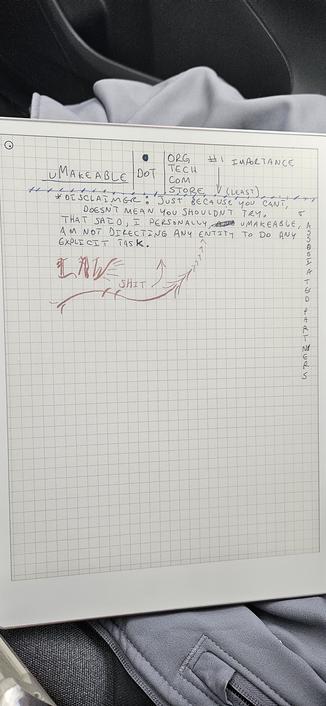 uMAKEABLE DOT ORG #1 IMPORTANCE
TECH
COM
STORE (LEAST)
*DISCLAIMER: JUST BECAUSE YOU CAN'T,
DOESN'T MEAN YOU SHOULDN'T TRY.
THAT SAID, I PERSONALLY, UMAKEABLE,
AM NOT DIRECTING ANY ENTITY TO DO ANY
EXPLICIT TASK.
LAW
SHIT
& ASSOCIATED PARTNERS